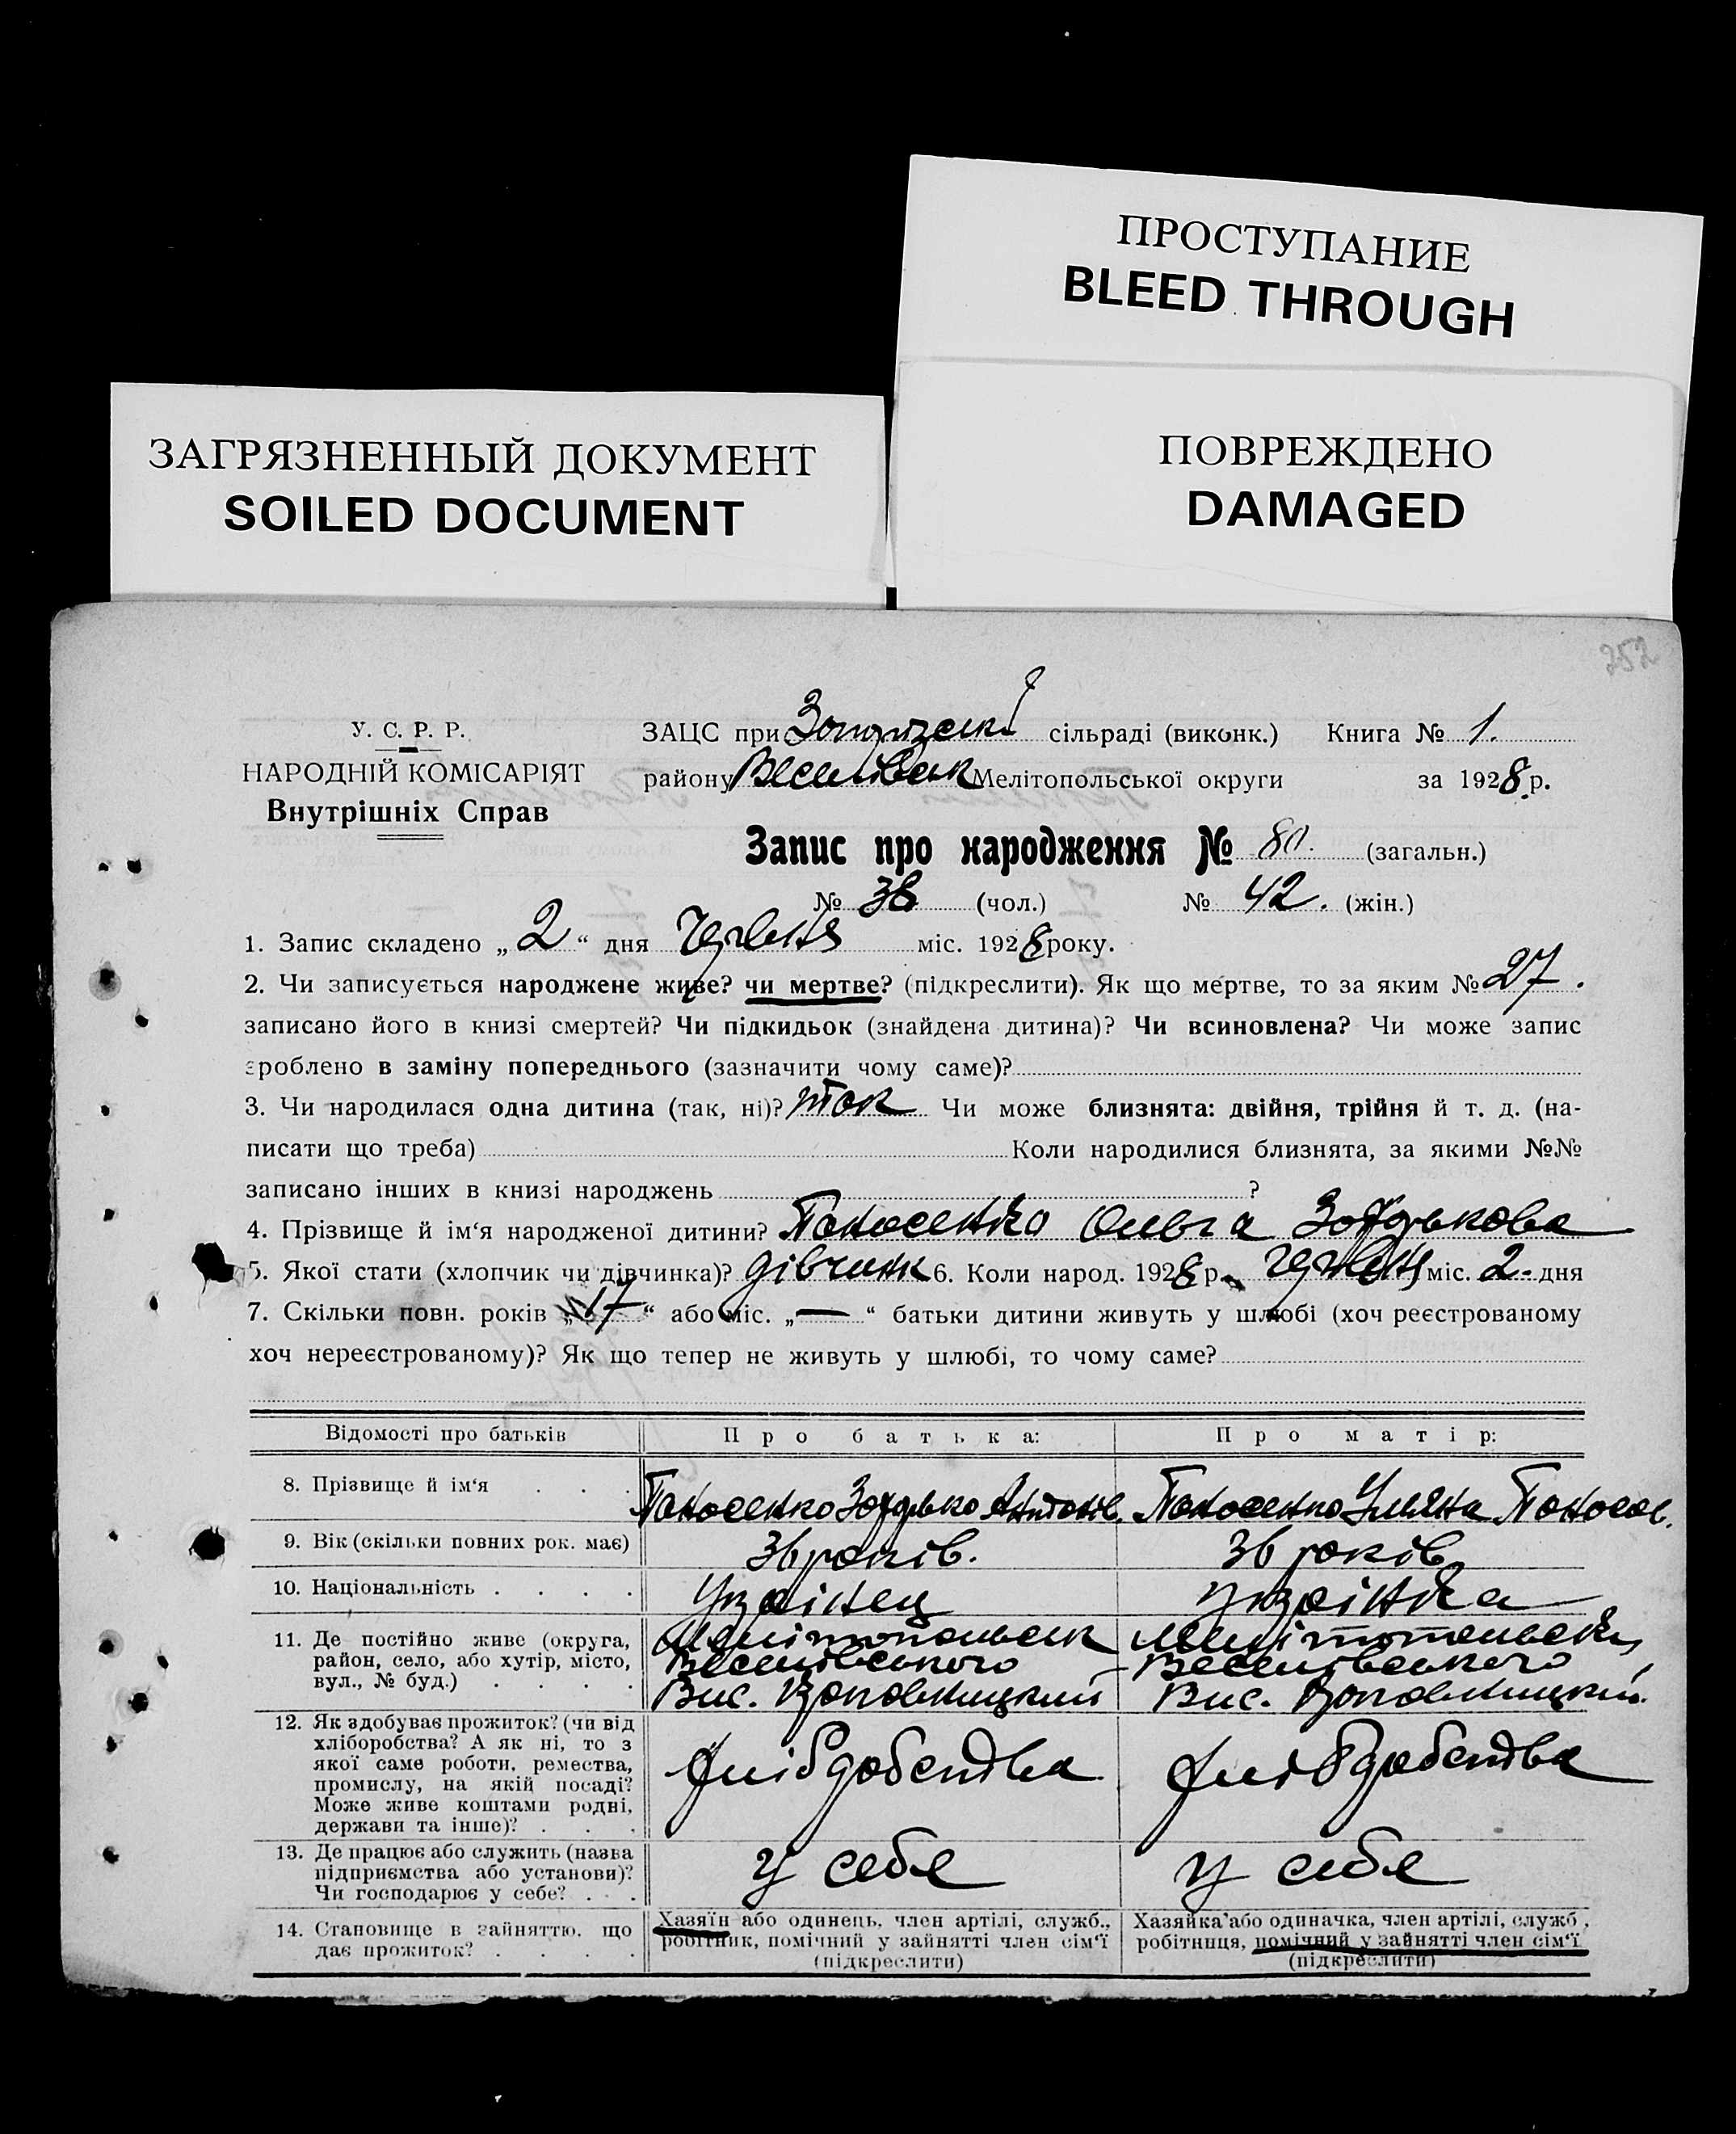 ПРОСТУПАНИЕ
BLEED THROUGH
ЗАГРЯЗНЕННЫЙ ДОКУМЕНТ
SOILED DOCUMENT
ПОВРЕЖДЕНО
DAMAGED
252
У. С. Р. Р.
НАРОДНІЙ КОМІСАРІЯТ
Внутрішніх Справ
ЗАЦС при сільраді (виконк.) Книга № 1.
району Веселівськ Мелітопольської округи за 1928 р.
Запис про народження № 80. (загальн.)
№ 38 (чол.) № 42. (жін.)
1. Запис складено „2“ дня червня міс. 1928 року.
2. Чи записується народжене живе? чи мертве? (підкреслити). Як що мертве, то за яким № 27.
записано його в книзі смертей? Чи підкидьок (знайдена дитина)? Чи всиновлена? Чи може запис
зроблено в заміну попереднього (зазначити чому саме)?
3. Чи народилася одна дитина (так, ні)? так Чи може близнята: двійня, трійня й т. д. (на-
писати що треба) Коли народилися близнята, за якими №№
записано інших в книзі народжень ?
4. Прізвище й ім'я народженої дитини? Панасенко Ольга Захарькова
5. Якої стати (хлопчик чи дівчинка)? дівчинк 6. Коли народ. 1928 р. червня міс. 2. дня
7. Скільки повн. років „17“ або міс. „—“ батьки дитини живуть у шлюбі (хоч реєстрованому
хоч нереєстрованому)? Як що тепер не живуть у шлюбі, то чому саме?
Відомості про батьків Про батька: Про матір:
8. Прізвище й ім'я . . . Панасенко Захарько Антонів. Панасенко Уляна Панасов.
9. Вік (скільки повних рок. має) 36 років. 36 років
10. Національність . . . . Українец Українка
11. Де постійно живе (округа,
район, село, або хутір, місто,
вул., № буд.) . . . .
Мелітопольськ
Веселівського
Вис.
Мелітопольськ
Веселівського
Вис.
12. Як здобуває прожиток? (чи від
хліборобства? А як ні, то з
якої саме роботи, ремества,
промислу, на якій посаді?
Може живе коштами родні,
держави та інше)? . . .
Хлібдобства Хлібдобства
13. Де працює або служить (назва
підприємства або установи)?
Чи господарює у себе? . . .
У себе У себе
14. Становище в зайняттю, що
дає прожиток? . . . .
Хазяїн або одинець, член артілі, служб.,
робітник, помічний у зайнятті член сім'ї
(підкреслити)
Хазяйка або одиначка, член артілі, служб.,
робітниця, помічний у зайнятті член сім'ї
(підкреслити)